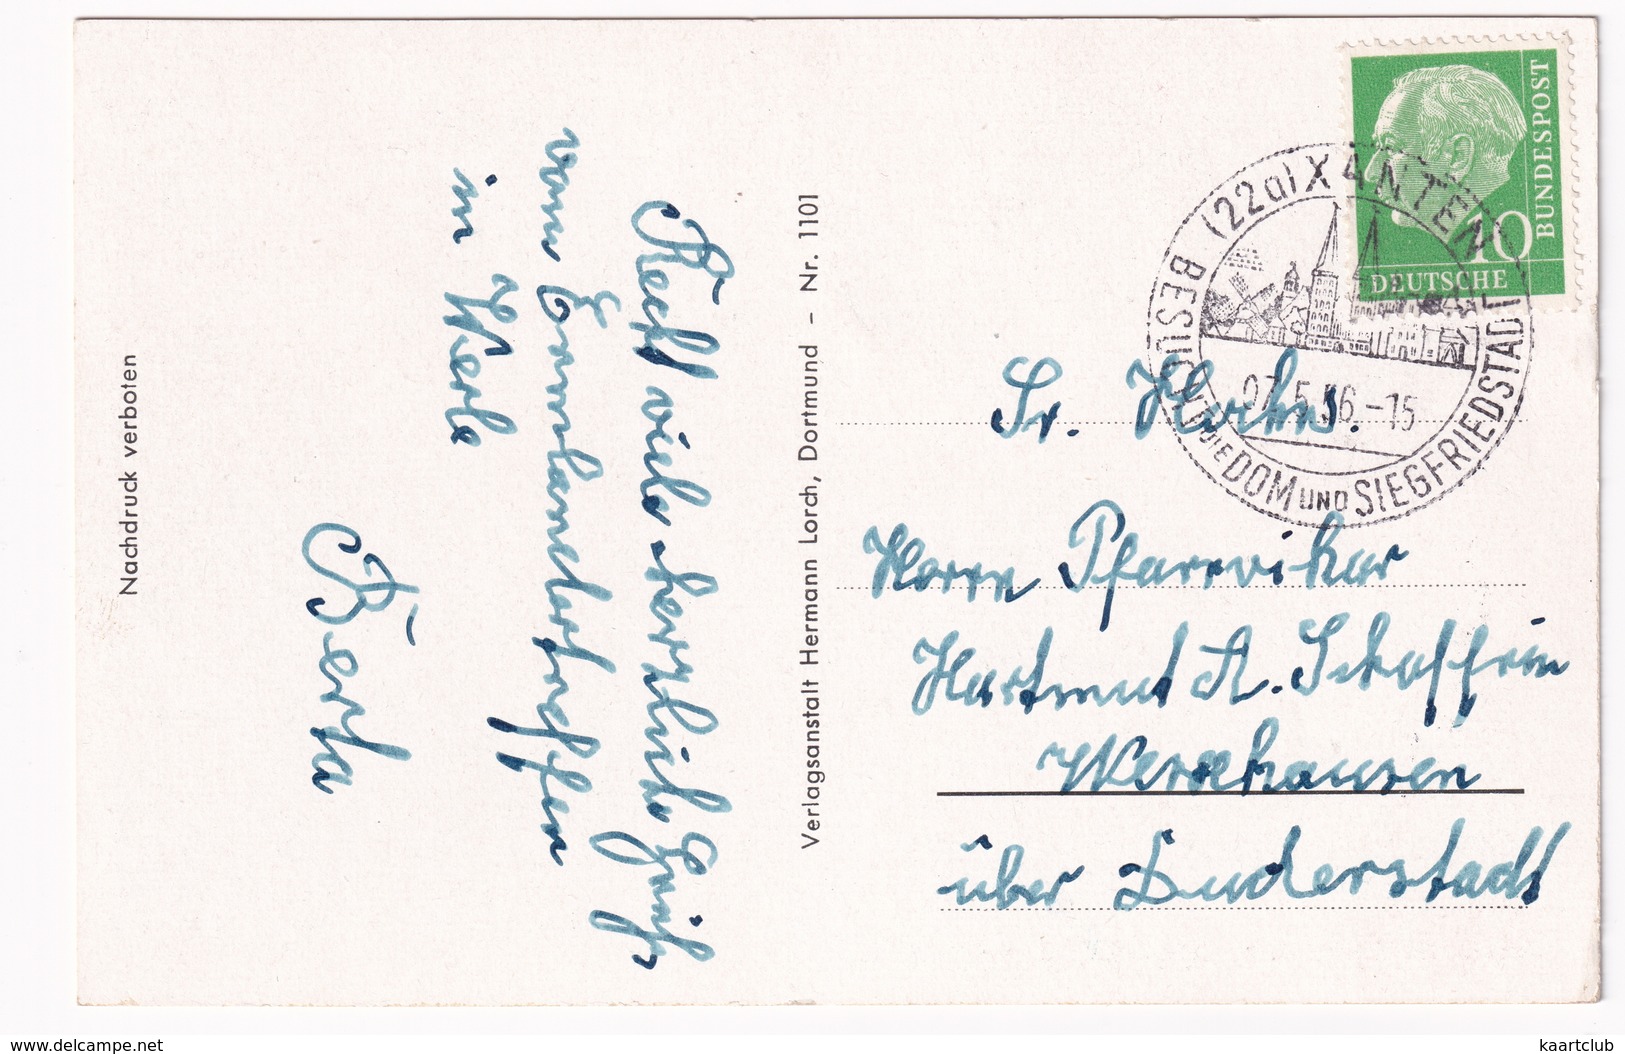 Recht viele herzliche Grüße
vom Ermlandtreffen
in Werl
Berta
Nachdruck verboten
Verlagsanstalt Hermann Lorch, Dortmund - Nr. 1101
DEUTSCHE
BUNDESPOST
10
(22a) XANTEN
BESUCHT DIE DOM UND SIEGFRIEDSTADT
07.5.56.-15
Sr. Hochw.
Herrn Pfarrvikar
Hartmut A.
über Duderstadt
www.delcampe.net
kaartclub